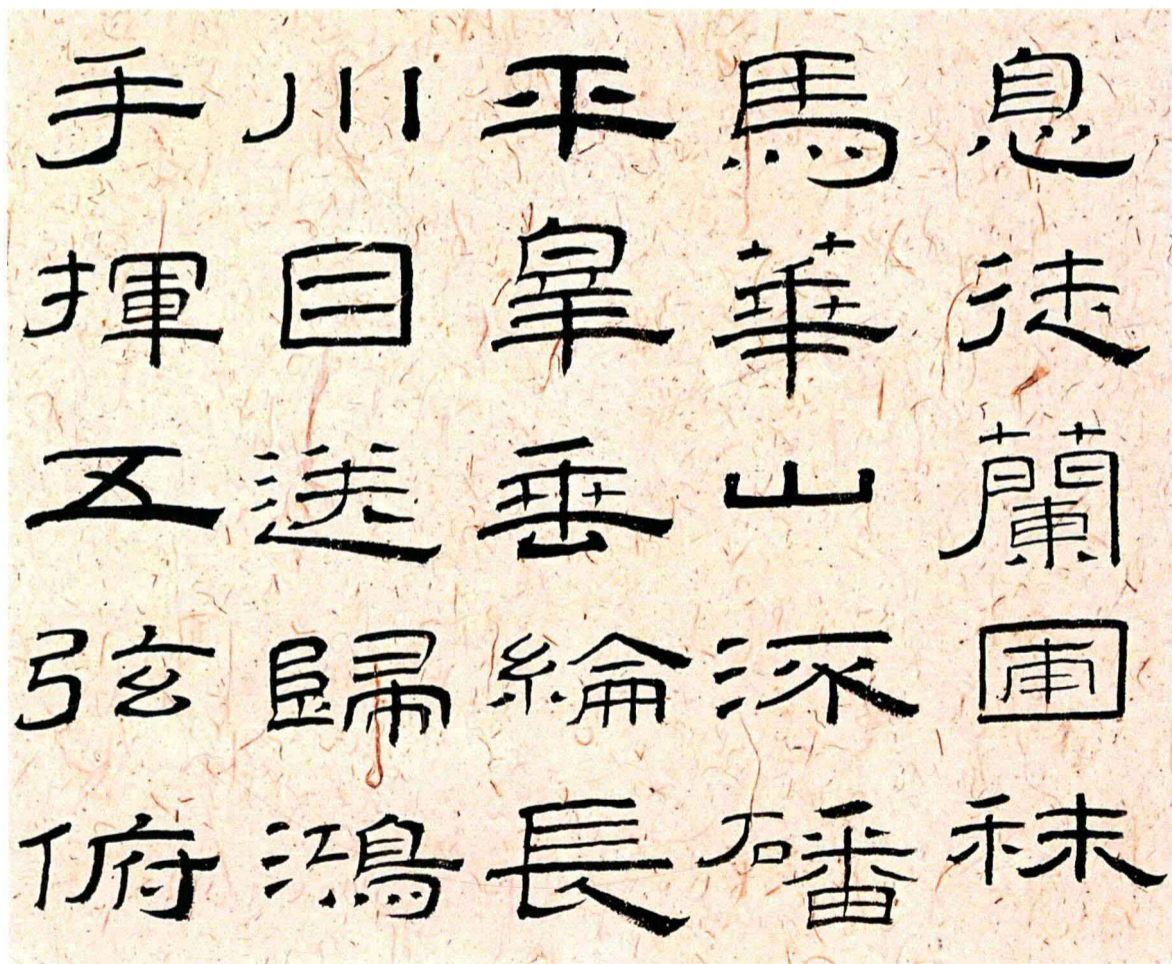 息徒蘭圃秣
馬華山流磻
平皋垂綸長
川目送歸鴻
手揮五弦俯